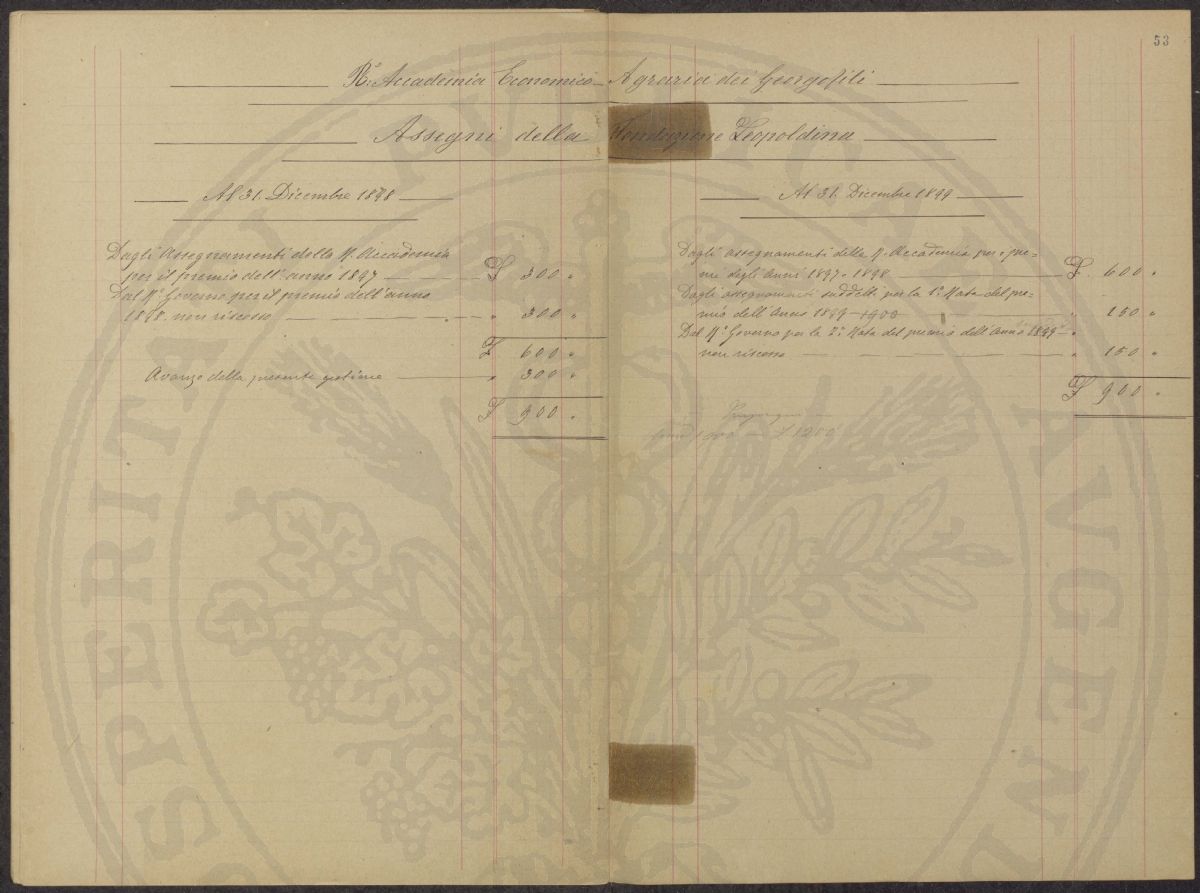 53
R.ª Accademia Economico-Agraria dei Georgofili
Assegni della Fondazione Leopoldina
Al 31. Dicembre 1898
Dagli Assegnamenti della R. Accademia
per il premio dell'anno 1897 £ 300 "
Dal R.º Governo per il premio dell'anno
1898. non riscosso " 300 "
£ 600 "
Avanzo della presente gestione " 300 "
£ 900 "
Al 31. Dicembre 1899
Dagli assegnamenti della R. Accademia per i pre=
mi degli anni 1897 e 1898 £ 600 "
Dagli assegnamenti suddetti per la 1ª Rata del pre=
mio dell'Anno 1899-1900 " 150 "
Dal R.º Governo per la 2ª Rata del premio dell'Anno 1899 "
non riscosso " 150 "
£ 900 "
1900 — £ 1200
PROSPERITATI PVBLICAE AVGENDAE